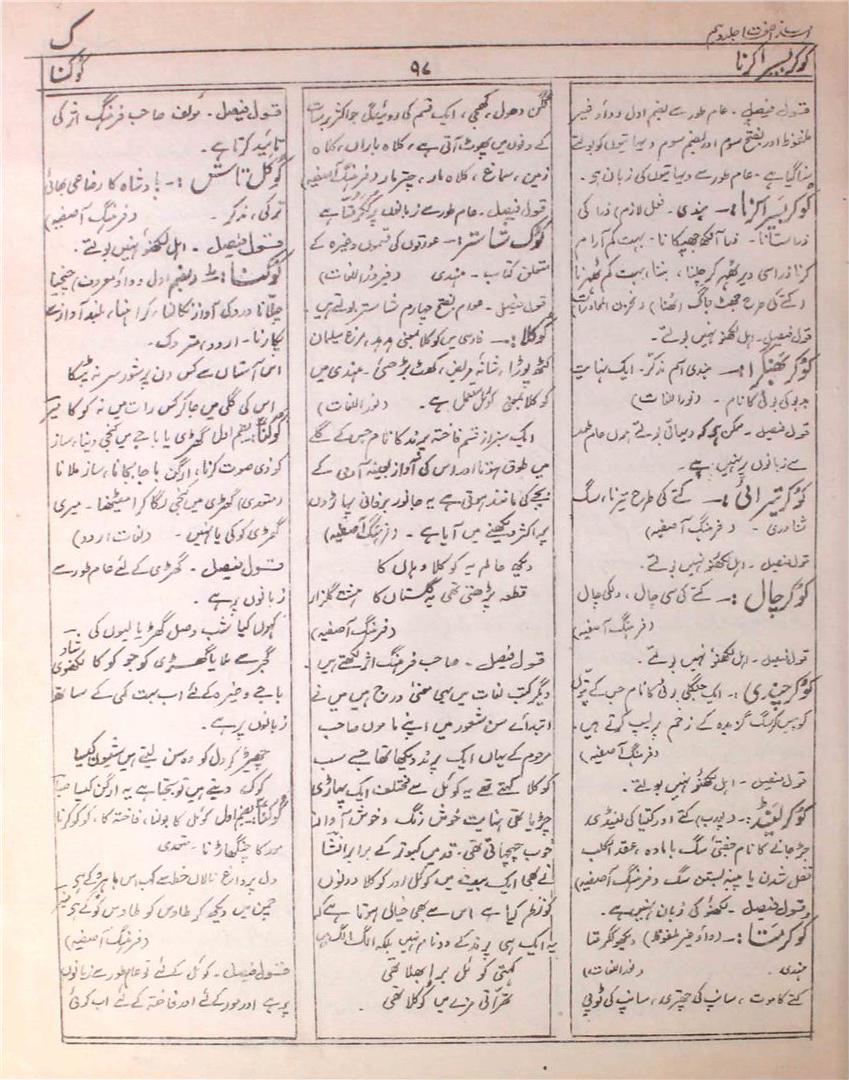 ک
کوکر بسیرا کرنا
۹۷
کوکنا
قول فیصل۔ عام طور سے بضم اول و واؤ غیر
ملفوظ اور بفتح سوم اور بضم سوم دیہاتیوں کو بولتے
سنا گیا ہے۔ عام طور سے دیہاتیوں کی زبان ہی۔
کوکر بسیرا کرنا:۔ ہندی۔ فعل لازم) ذرا کی
ذرا سستانا۔ ذرا آنکھ جھپکانا۔ بہت کم آرام
کرنا ذرا سی دیر ٹھہر کر چلنا، بسنا، بہت کم ٹھہرنا
(کتے کی طرح جھٹ جاگ اٹھنا)
قول فیصل۔ اہل لکھنؤ نہیں بولتے۔
کوکر بھنگرا:۔ ہندی اسم مذکر۔ ایک نہایت
بدبو کی بوٹی کا نام۔ (نور اللغات)
قول فیصل۔ ممکن ہے کہ دیہاتی بولتے ہوں عام طور
سے زبانوں پر نہیں ہے۔
کوکر تیرائی:۔ کتے کی طرح تیرنا، سگ
شناوری۔ (فرہنگ آصفیہ)
قول فیصل۔ اہل لکھنؤ نہیں بولتے۔
کوکر چال:۔ کتے کی سی چال، دلکی چال
(فرہنگ آصفیہ)
قول فیصل۔ اہل لکھنؤ نہیں بولتے۔
کوکر چندی:۔ ایک جنگلی بوٹی کا نام جس کے پتوں
کو پیس کر سگ گزیدہ کے زخم پر لیپ کرتے ہیں۔
(فرہنگ آصفیہ)
قول فیصل۔ اہل لکھنؤ نہیں بولتے۔
کوکر لینڈ:۔ (پورب) کتے اور کتیا کی لینڈی،
جڑ جانے کا نام جفتی سگ با مادہ، عقد الکلب
قفل شدن یا چینہ بستن سگ (فرہنگ آصفیہ)
قول فیصل۔ لکھنؤ کی زبان نہیں ہے۔
کوکر متا:۔ (واؤ غیر ملفوظ) دیکھو ککر متا
ہندی۔ (نور اللغات)
کتے کا موت، سانپ کی چھتری، سانپ کی ٹوپی
دھول، کھمبی، ایک قسم کی روئیدگی جو اکثر برسات
کے دنوں میں پھوٹ آتی ہے، کلاہ باراں، کلاہ
زمین، سماغ، کلاہ مار، چتر مار (فرہنگ آصفیہ)
قول فیصل۔ عام طور سے زبانوں پر ککر متا ہے
کوک شاستر:۔ عورتوں کی قسموں وغیرہ کے
متعلق کتاب۔ ہندی (فیروز اللغات)
قول فیصل۔ عوام بفتح چہارم شاستر بولتے ہیں۔
کوکلا:۔ فارسی میں کوکلا بمعنی ہدہد، مرغ سلیمان
کٹھ پھوڑا، شانہ سر، کھٹ بڑھئی۔ ہندی میں
کوکلا بمعنی کوئل مستعمل ہے۔ (نور اللغات)
ایک سبز از قسم فاختہ پرند کا نام جس کے گلے
میں طوق ہوتا اور اس کی آواز بعینہ آدمی کے
بچے کی مانند ہوتی ہے یہ جانور برفانی پہاڑوں
پر اکثر دیکھنے میں آیا ہے۔ (فرہنگ آصفیہ)
دیکھ عالم یہ کوکلا وہاں کا
قطعہ پڑھتی تھی یہ گلستاں کا
(فرہنگ آصفیہ)
قول فیصل۔ صاحب فرہنگ اثر لکھتے ہیں
دیگر کتب لغات میں یہی معنی درج ہیں میں نے
ابتدائے سن شعور میں اپنے ماموں صاحب
مرحوم کے یہاں ایک پرند دیکھا تھا جسے سب
کوکلا کہتے تھے یہ کوئل سے مختلف ایک پہاڑی
چڑیا تھی نہایت خوش رنگ و خوش آواز
خوب چہچہاتی تھی۔ قد میں کبوتر کے برابر انشا
نے بھی ایک بیت میں کوئل اور کوکلا دونوں
کو نظم کیا ہے اس سے بھی خیال ہوتا ہے کہ
یہ ایک ہی پرند کے دو نام نہیں بلکہ الگ الگ ہیں
کہتی کوئل برا بھلا تھی
تھراتی مزے میں کوکلا تھی
قول فیصل۔ مولف صاحب فرہنگ اثر کی
تائید کرتا ہے۔
کوکل تاش:۔ بادشاہ کا رضاعی بھائی
ترکی، مذکر۔ (فرہنگ آصفیہ)
قول فیصل۔ اہل لکھنؤ نہیں بولتے۔
کوکنا:۔ (بضم اول و واؤ معروف) چیخنا
چلانا درد کی آواز نکالنا، کراہنا، بلند آواز سے
پکارنا۔ اردو، متروک۔
اس آستاں سے کس دن پر شور سر نہ پٹکا
اس کی گلی میں جا کر کس رات میں نہ کوکا میر
کوکنا:۔ بضم اول گھڑی یا باجے میں کنجی دینا، ساز
کو ذی صوت کرنا، ارگن باجا بجانا، ساز ملانا
(متعدی) گھڑی میں کنجی لگا کر امیٹھنا۔ میری
گھڑی کوکی یا نہیں۔ (لغات اردو)
قول فیصل۔ گھڑی کے لئے عام طور سے
زبانوں پر ہے۔
کھولا کیا شب وصل گھڑیالیوں کی
گجر سے ملایا گھڑی کو جو کوکا شاد لکھنوی
باجے وغیرہ کے لئے اب بہت کمی کے ساتھ
زبانوں پر ہے۔
چھیڑ کر دل کو وہ سن لیتے ہیں شیون کیسا
کوک دیتے ہیں تو بجتا ہے یہ ارگن کیسا
کوکنا:۔ بضم اول کوئل کا بولنا، فاختہ کا، کو کو کرنا
مور کا چنگھاڑنا۔ متعدی
چمن میں دیکھ کر طاؤس کو طاؤس کوکے ہی
(فرہنگ آصفیہ)
قول فیصل۔ کوئل کے لئے تو عام طور سے زبانوں
پر ہے اور مور کے لئے اور فاختہ کے لئے اب کوئی